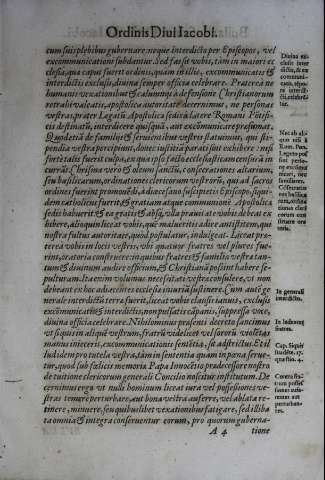 Ordinis Diui Iacobi.
cum suis plebibus gubernare: neque interdicto per Episcopos, vel
excommunicationi subdantur. Sed fas sit vobis, tam in maiori ec
clesia, quæ caput fuerit ordinis, quam in alijs, excommunicatis &
interdictis exclusis, diuina semper officia celebrare. Præterea ne ab
humanis vexationibus & calumnijs à defensione Christianorum
retrahi valeatis, apostolica autoritate decernimus, ne personas
vestras, præter Legatū Apostolicæ sedis à latere Romani Pōtifi-
cis destinatū, interdicere quisquā, aut excommunicare præsumat.
Quod etiā de familijs & seruientibus vestris statuimus, qui sti-
pendia vestra percipiunt, donec iustitiā parati sunt exhibere: nisi
forte talis fuerit culpa, ex qua ipso facto ecclesiasticam censurā in
currāt. Chrisma vero & oleum sanctū, consecrationes altarium,
seu basilicarum, ordinationes clericorum vestrorum, qui ad sacros
ordines fuerint promouēdi, à diœcesano suscipietis Episcopo, siqui-
dem catholicus fuerit, & gratiam atque communionē Apostolicæ
sedis habuerit & ea gratis & absq; vlla prauitate vobis debeat ex
hibere, alioquin liceat vobis, quē malueritis adire antistitem, qui
nostra fultus autoritate, quod postulatur, indulgeat. Liceat præ-
terea vobis in locis vestris, vbi quatuor fratres vel plures fue-
rint, oratoria construere: in quibus fratres & familia vestra tan-
tum & diuinum audire officium, & Christianā possint habere se-
pulturam. Ita enim volumus necessitati vestræ consulere, vt non
debeant ex hoc adiacentes ecclesiæ iniuriā sustinere. Cum autē ge
nerale interdictū terræ fuerit, liceat vobis clausis ianuis, exclusis
excōmunicatis & interdictis, non pulsatis cāpanis, suppressa voce,
diuina officia celebrare. Nihilominus præsenti decreto sancimus
vt siquis in aliquē vestrum, fratrū videlicet vel sororū violētas
manus iniecerit, excommunicationis sentētia, sit adstrictus. Et il-
lud idem pro tutela vestra, tā in sententia quam in pœna serue-
tur, quod sub fœlicis memoriæ Papa Innocētio prædecessore nostro
de tuitione clericorum generali Concilio noscitur institutum. De
cernimus ergo vt nulli hominum liceat iura vel possessiones ve-
stras temere perturbare, aut bona vestra auferre, vel ablata re-
tinere, minuere, seu quibuslibet vexationibus fatigare, sed illiba
ta omnia & integra conseruentur eorum, pro quorum guberna-
A 4 tione
Diuina ex
clusis inter
dictis, & ex
communi-
catis,
in interdi-
ctū celebrā-
tur.
Nec ab alio
quā nisi à
Rom. Pon.
Legato pos
sint perso-
næ excōmu
nicari, nec
familiares.
Cōsecratio-
nes basilica
rum, ordina
tiones cleri
corum con
stituere ora
toria.
In generali
interdicto.
In lædentes
fratres.
Cap. Siquis
suadēte. 17.
quæstio. 4.
Contra fra-
trum posses
siones teme
re aut
perturban-
tes.